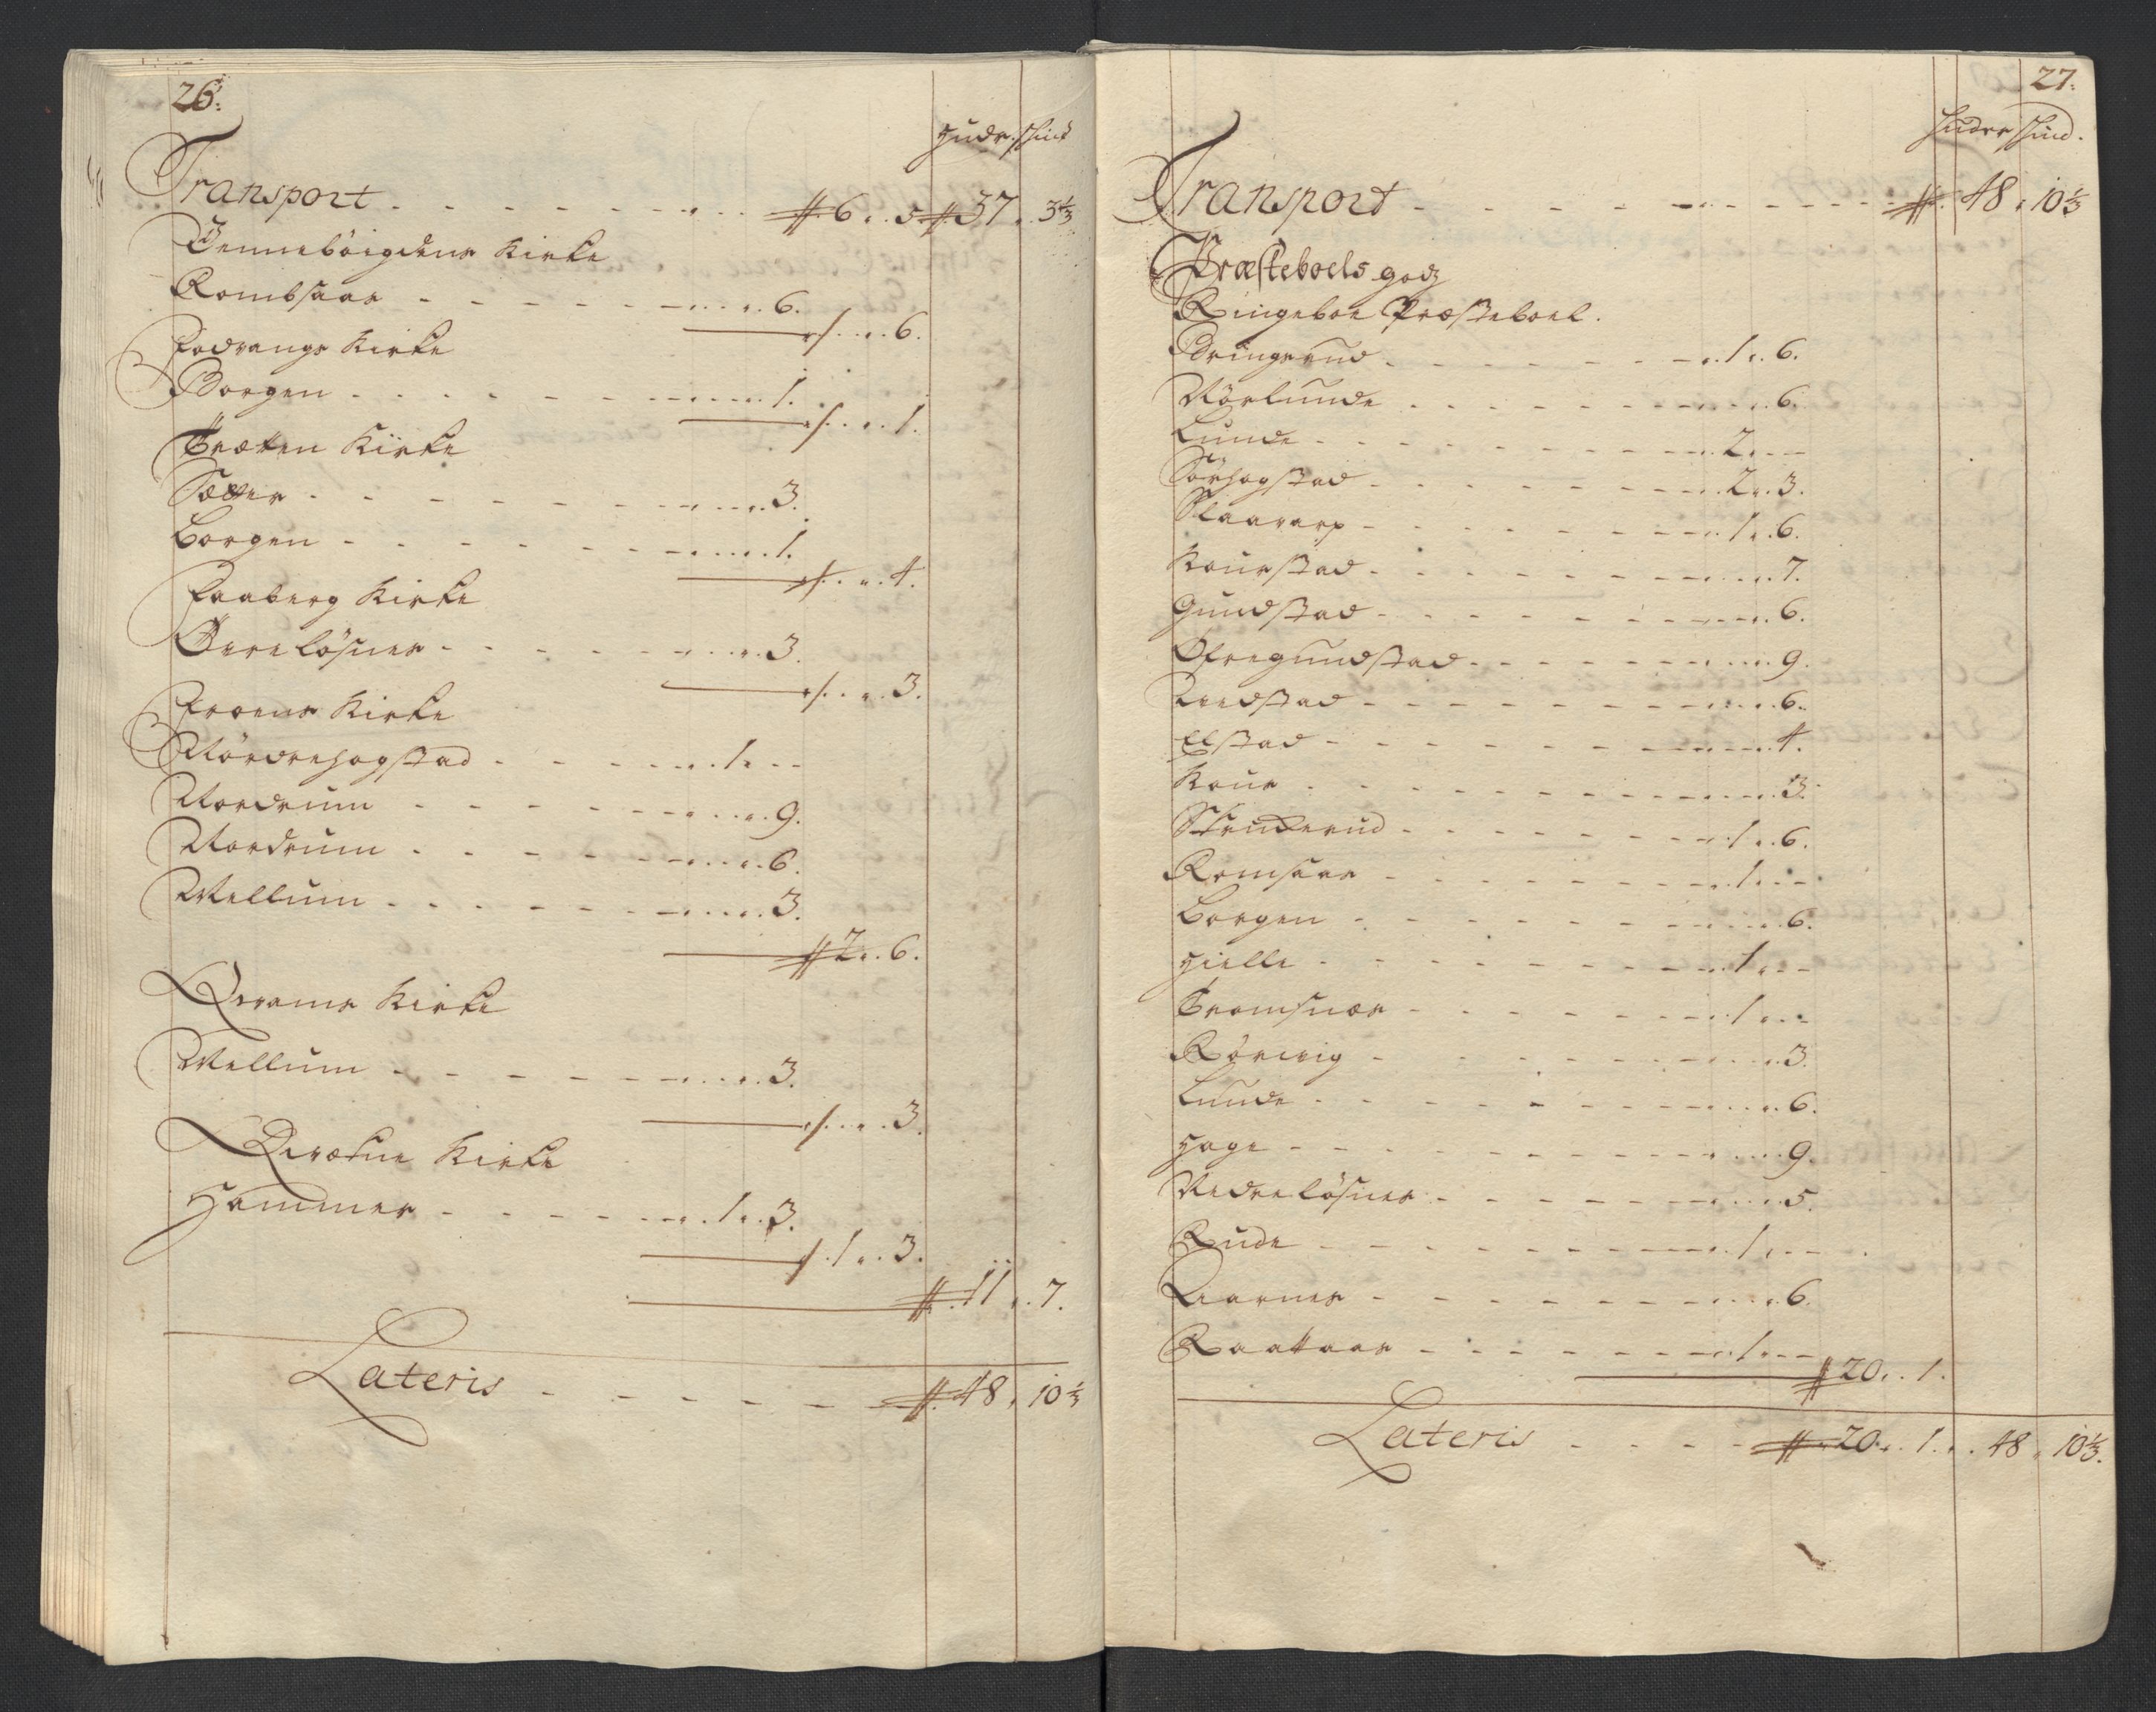 26.
Huder. skind
Transport - - - - - - - . . # 6 . . 5 # 37 . 3⅓
Vennebøigdens Kirke
Rombsaas - - - - - - . . . 6.
. . . 6.
Fodvangs Kirke
Borgen - - - - - - . . . 1.
. . . 1.
Trætten Kirke
Sætter - - - - - - . . . 3.
Borgen - - - - - - . . . 1.
. . . 4.
Faaberg Kirke
Øvreløsnes - - - - - . . . 3.
. . . 3.
Froens Kirke
Nordrehogstad - - - - - . 1 . - -
Nordrum - - - - - - . . . 9.
Nordrum - - - - - - . . . 6.
Mellum - - - - - - . . . 3.
# 2 . . 6.
Qvams Kirke
Mellum - - - - - - . . . 3.
. . . 3.
Qvætne Kirke
Hammer - - - - - . 1 . . 3.
. 1 . . 3.
# 11 . . 7.
Lateris - - - - - - # 48 . 10⅓
27.
Huder skind.
Transport - - - - - - - - - - # 48 . 10⅓
Præsteboels godz
Ringeboe Præsteboel.
Bringerud - - - - - - . 1 . . 6.
Nørlunde - - - - - - . . . 6.
Lunde - - - - - - . 2 . - -
Sørhogstad - - - - - - . 2 . . 3.
Klaavarp - - - - - - . 1 . . 6.
Kourstad - - - - - - . . . 7.
Gundstad - - - - - - . . . 6.
Øfregundstad - - - - - - . . . 9.
Lundstad - - - - - - . . . 6.
Elstad - - - - - - . . . 4.
Kour - - - - - - . . . 3.
Strukerud - - - - - - . 1 . . 6.
Romsaas - - - - - - . 1 . - -
Borgen - - - - - - . . . 6.
Hielle - - - - - - . 1 . - -
Tromsnæs - - - - - - . 1 . - -
Rørvig - - - - - - . . . 3.
Lunde - - - - - - . . . 6.
Hage - - - - - - . . . 9.
Nedreløsnes - - - - - - . . . 5.
Rude - - - - - - . 1 . - -
Aarnes - - - - - - . . . 6.
Raattaas - - - - - - . 1 . - -
# 20 . . 1.
Lateris - - - - # 20 . . 1 . . 48 . 10⅓.